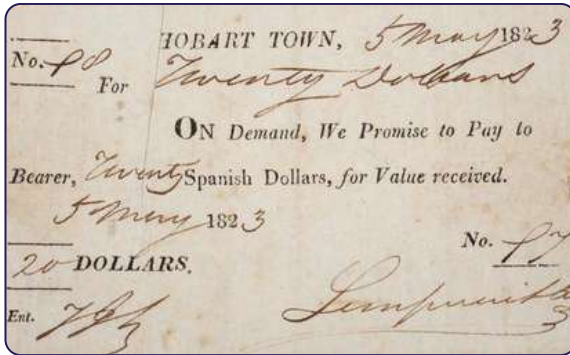 HOBART TOWN, 5 May 1823
No. 98 For Twenty Dollars
ON Demand, We Promise to Pay to
Bearer, Twenty Spanish Dollars, for Value received.
5 May 1823
No. 97
20 DOLLARS.
Ent.